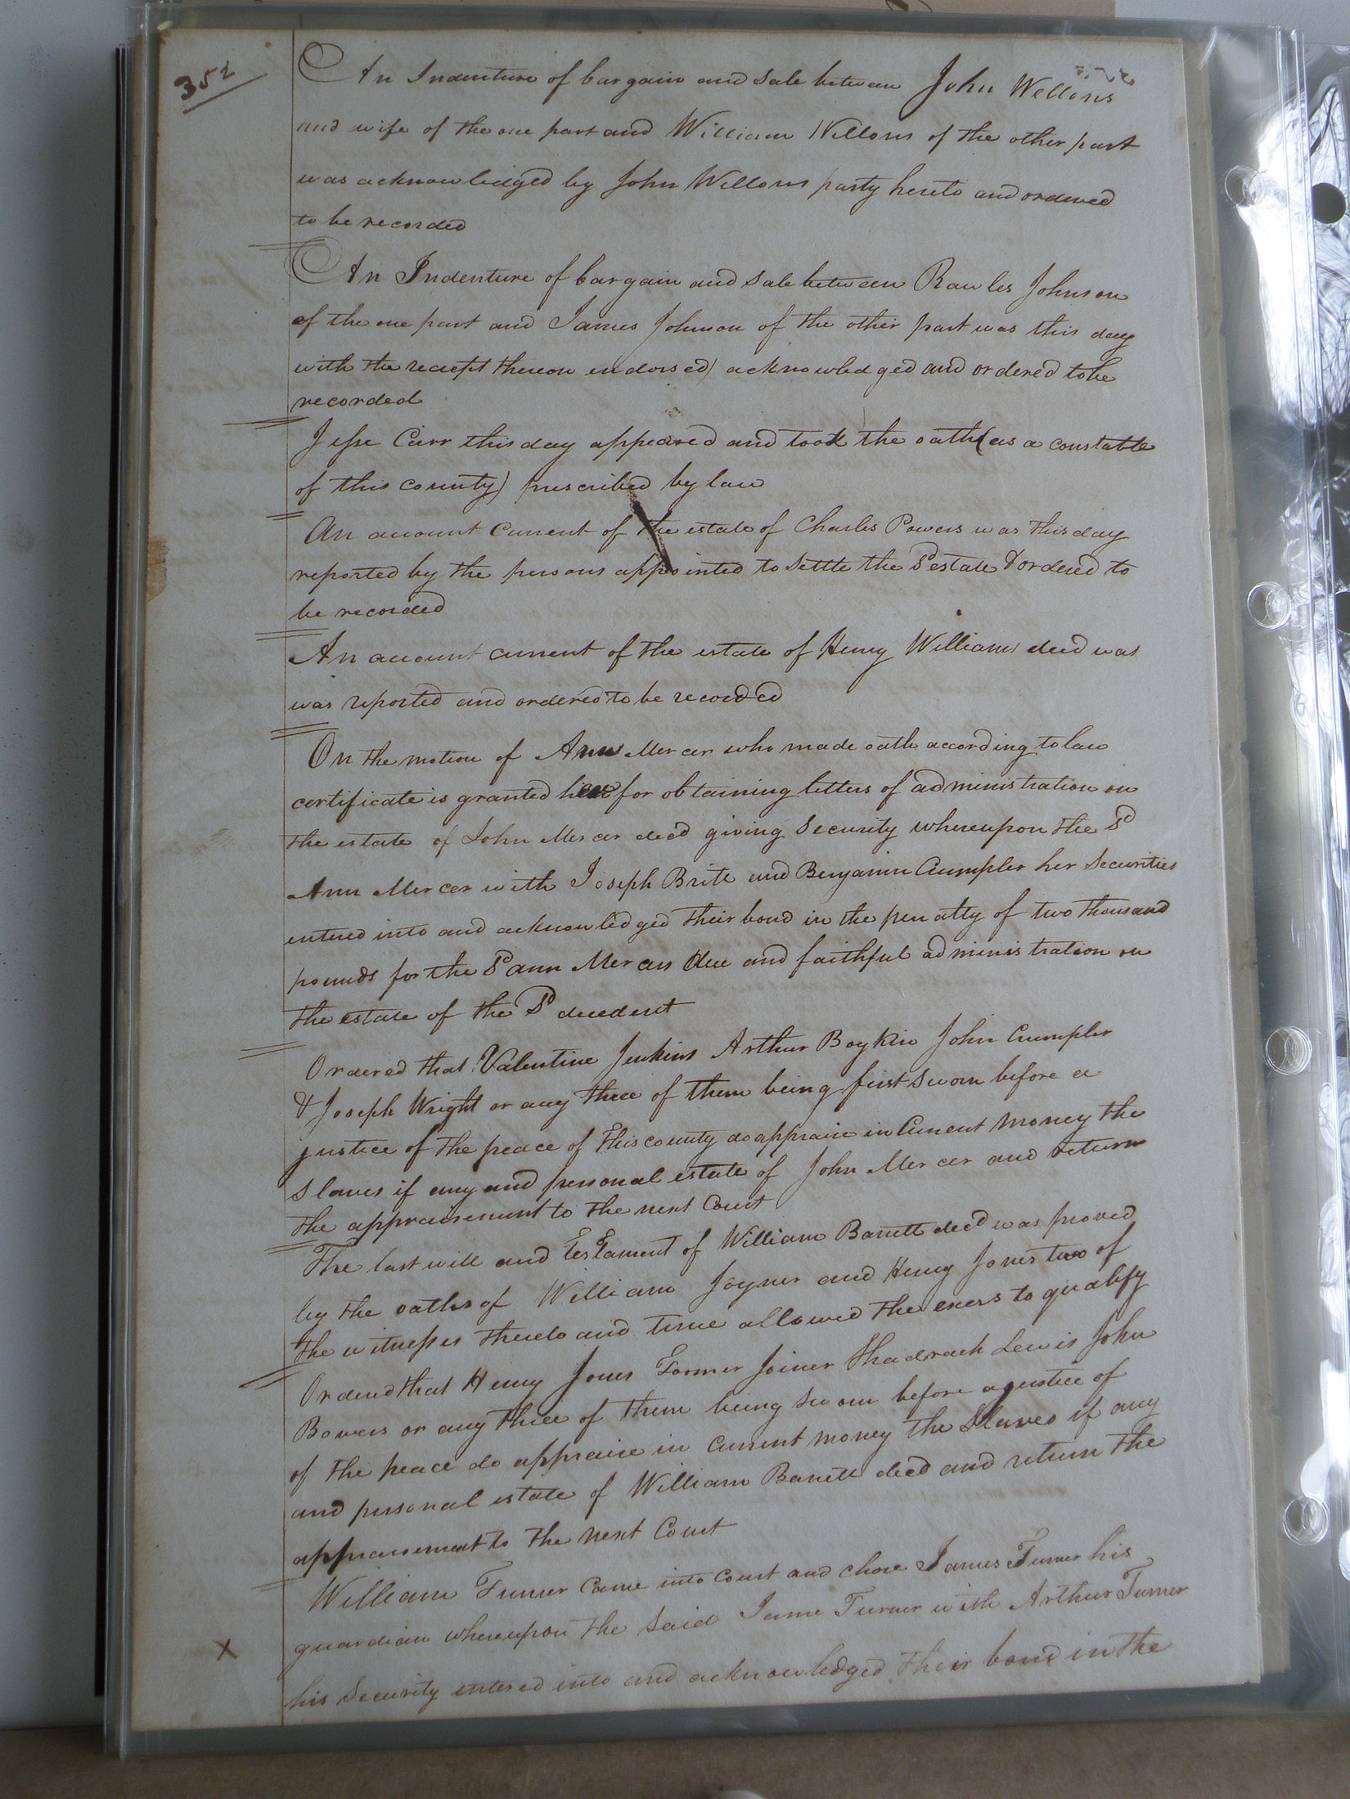 352
An Indenture of bargain and Sale between John Wellons
and wife of the one part and William Wellons of the other part
was acknowledged by John Wellons party hereto and ordered
to be recorded
An Indenture of bargain and Sale between Rawles Johnson
of the one part and James Johnson of the other part was this day
with the receipt thereon endorsed acknowledged and ordered to be
recorded
Jesse Carr this day appeared and took the oath (as a constable
of this county) prescribed by law
An account current of the estate of Charles Powers was this day
reported by the persons appointed to settle the Sd estate & ordered to
be recorded
An account current of the estate of Henry Williams decd was
was reported and ordered to be recorded
On the motion of Ann Mercer who made oath according to law
certificate is granted her for obtaining letters of administration on
the estate of John Mercer decd giving Security whereupon the Sd
Ann Mercer with Joseph Britt and Benjamin Crumpler her Securities
entered into and acknowledged their bond in the penalty of two thousand
pounds for the Sd ann Mercers due and faithful administration on
the estate of the Sd decedent
Ordered that Valentine Jenkins Arthur Boykin John Crumpler
& Joseph Wright or any three of them being first Sworn before a
justice of the peace of this county do appraise in Current money the
Slaves if any and personal estate of John Mercer and return
the appraisement to the next Court
The last will and Testament of William Barrett decd was proved
by the oaths of William Joyner and Henry Jones two of
the witnesses thereto and time allowed the exers to qualify
Ordered that Henry Jones Joiner Shadrach Lewis John
Bowers or any three of them being sworn before a justice of
of the peace do appraise in current money the Slaves if any
and personal estate of William Barrett decd and return the
appraisement to the next Court
William Turner Came into Court and chose James Turner his
guardian whereupon the Said Jame Turner with Arthur Turner
X
his Security entered into and acknowledged their bond in the